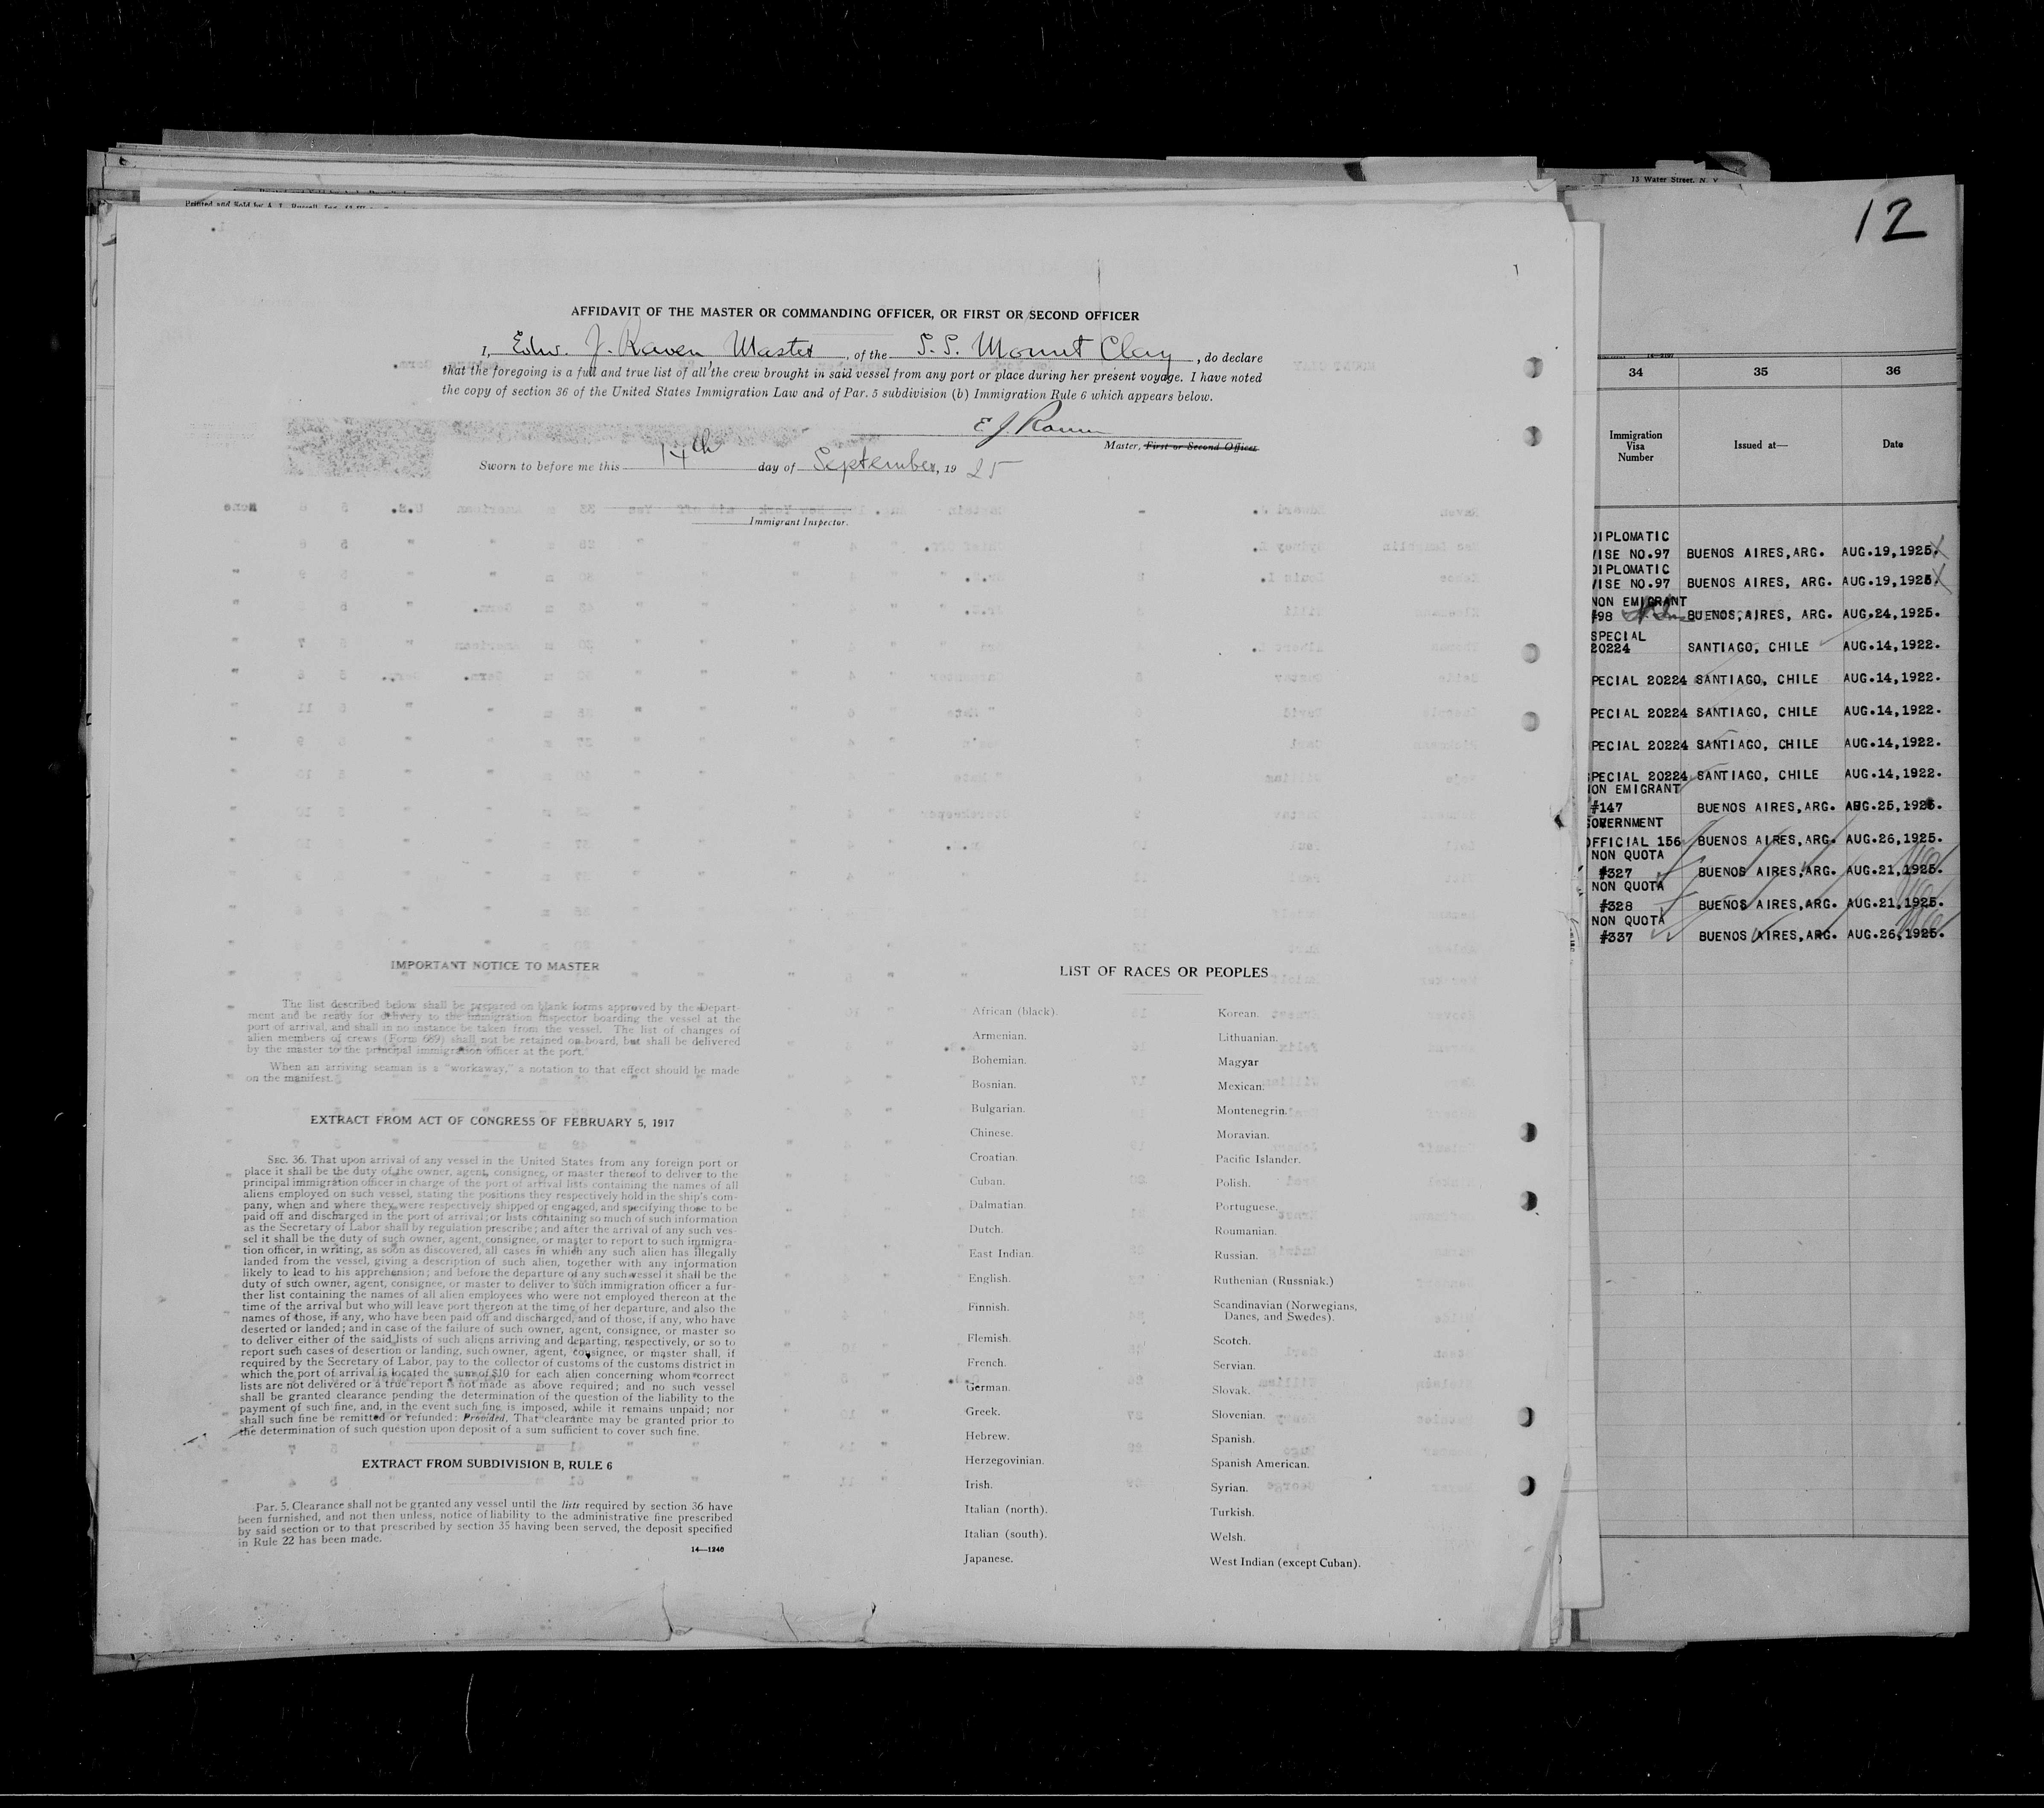 13 Water Street, N. Y.
Printed and Sold by
12
AFFIDAVIT OF THE MASTER OR COMMANDING OFFICER, OR FIRST OR SECOND OFFICER
I, Edw. J. Raven, Master, of the S.S. Mount Clay, do declare
that the foregoing is a full and true list of all the crew brought in said vessel from any port or place during her present voyage. I have noted
the copy of section 36 of the United States Immigration Law and of Par. 5 subdivision (b) Immigration Rule 6 which appears below.
E J. Raven
Master, First or Second Officer
Sworn to before me this 14th day of September, 1925
Immigrant Inspector.
IMPORTANT NOTICE TO MASTER
The list described below shall be prepared on blank forms approved by the Depart-
ment and be ready for delivery to the immigration inspector boarding the vessel at the
port of arrival, and shall in no instance be taken from the vessel. The list of changes of
alien members of crews (Form 689) shall not be retained on board, but shall be delivered
by the master to the principal immigration officer at the port.
When an arriving seaman is a "workaway," a notation to that effect should be made
on the manifest.
EXTRACT FROM ACT OF CONGRESS OF FEBRUARY 5, 1917
SEC. 36. That upon arrival of any vessel in the United States from any foreign port or
place it shall be the duty of the owner, agent, consignee, or master thereof to deliver to the
principal immigration officer in charge of the port of arrival lists containing the names of all
aliens employed on such vessel, stating the positions they respectively hold in the ship's com-
pany, when and where they were respectively shipped or engaged, and specifying those to be
paid off and discharged in the port of arrival; or lists containing so much of such information
as the Secretary of Labor shall by regulation prescribe; and after the arrival of any such ves-
sel it shall be the duty of such owner, agent, consignee, or master to report to such immigra-
tion officer, in writing, as soon as discovered, all cases in which any such alien has illegally
landed from the vessel, giving a description of such alien, together with any information
likely to lead to his apprehension; and before the departure of any such vessel it shall be the
duty of such owner, agent, consignee, or master to deliver to such immigration officer a fur-
ther list containing the names of all alien employees who were not employed thereon at the
time of the arrival but who will leave port thereon at the time of her departure, and also the
names of those, if any, who have been paid off and discharged, and of those, if any, who have
deserted or landed; and in case of the failure of such owner, agent, consignee, or master so
to deliver either of the said lists of such aliens arriving and departing, respectively, or so to
report such cases of desertion or landing, such owner, agent, consignee, or master shall, if
required by the Secretary of Labor, pay to the collector of customs of the customs district in
which the port of arrival is located the sum of $10 for each alien concerning whom correct
lists are not delivered or a true report is not made as above required; and no such vessel
shall be granted clearance pending the determination of the question of the liability to the
payment of such fine, and, in the event such fine is imposed, while it remains unpaid; nor
shall such fine be remitted or refunded: Provided, That clearance may be granted prior to
the determination of such question upon deposit of a sum sufficient to cover such fine.
EXTRACT FROM SUBDIVISION B, RULE 6
Par. 5. Clearance shall not be granted any vessel until the lists required by section 36 have
been furnished, and not then unless, notice of liability to the administrative fine prescribed
by said section or to that prescribed by section 35 having been served, the deposit specified
in Rule 22 has been made.
14—1240
LIST OF RACES OR PEOPLES
African (black).
Armenian.
Bohemian.
Bosnian.
Bulgarian.
Chinese.
Croatian.
Cuban.
Dalmatian.
Dutch.
East Indian.
English.
Finnish.
Flemish.
French.
German.
Greek.
Hebrew.
Herzegovinian.
Irish.
Italian (north).
Italian (south).
Japanese.
Korean.
Lithuanian.
Magyar
Mexican.
Montenegrin.
Moravian.
Pacific Islander.
Polish.
Portuguese.
Roumanian.
Russian.
Ruthenian (Russniak.)
Scandinavian (Norwegians,
Danes, and Swedes).
Scotch.
Servian.
Slovak.
Slovenian.
Spanish.
Spanish American.
Syrian.
Turkish.
Welsh.
West Indian (except Cuban).
34 35 36
Immigration Visa Number Issued at— Date
DIPLOMATIC
VISE NO.97 BUENOS AIRES,ARG. AUG.19,1925.
DIPLOMATIC
VISE NO.97 BUENOS AIRES, ARG. AUG.19,1925.
NON EMIGRANT
#98 BUENOS,AIRES, ARG. AUG.24,1925.
SPECIAL
20224 SANTIAGO, CHILE AUG.14,1922.
PECIAL 20224 SANTIAGO, CHILE AUG.14,1922.
PECIAL 20224 SANTIAGO, CHILE AUG.14,1922.
PECIAL 20224 SANTIAGO, CHILE AUG.14,1922.
SPECIAL 20224 SANTIAGO, CHILE AUG.14,1922.
ON EMIGRANT
#147 BUENOS AIRES,ARG. AUG.25,1925.
GOVERNMENT
OFFICIAL 156 BUENOS AIRES,ARG. AUG.26,1925.
NON QUOTA
#327 BUENOS AIRES,ARG. AUG.21,1925.
NON QUOTA
#328 BUENOS AIRES,ARG. AUG.21,1925.
NON QUOTA
#337 BUENOS AIRES,ARG. AUG.26,1925.